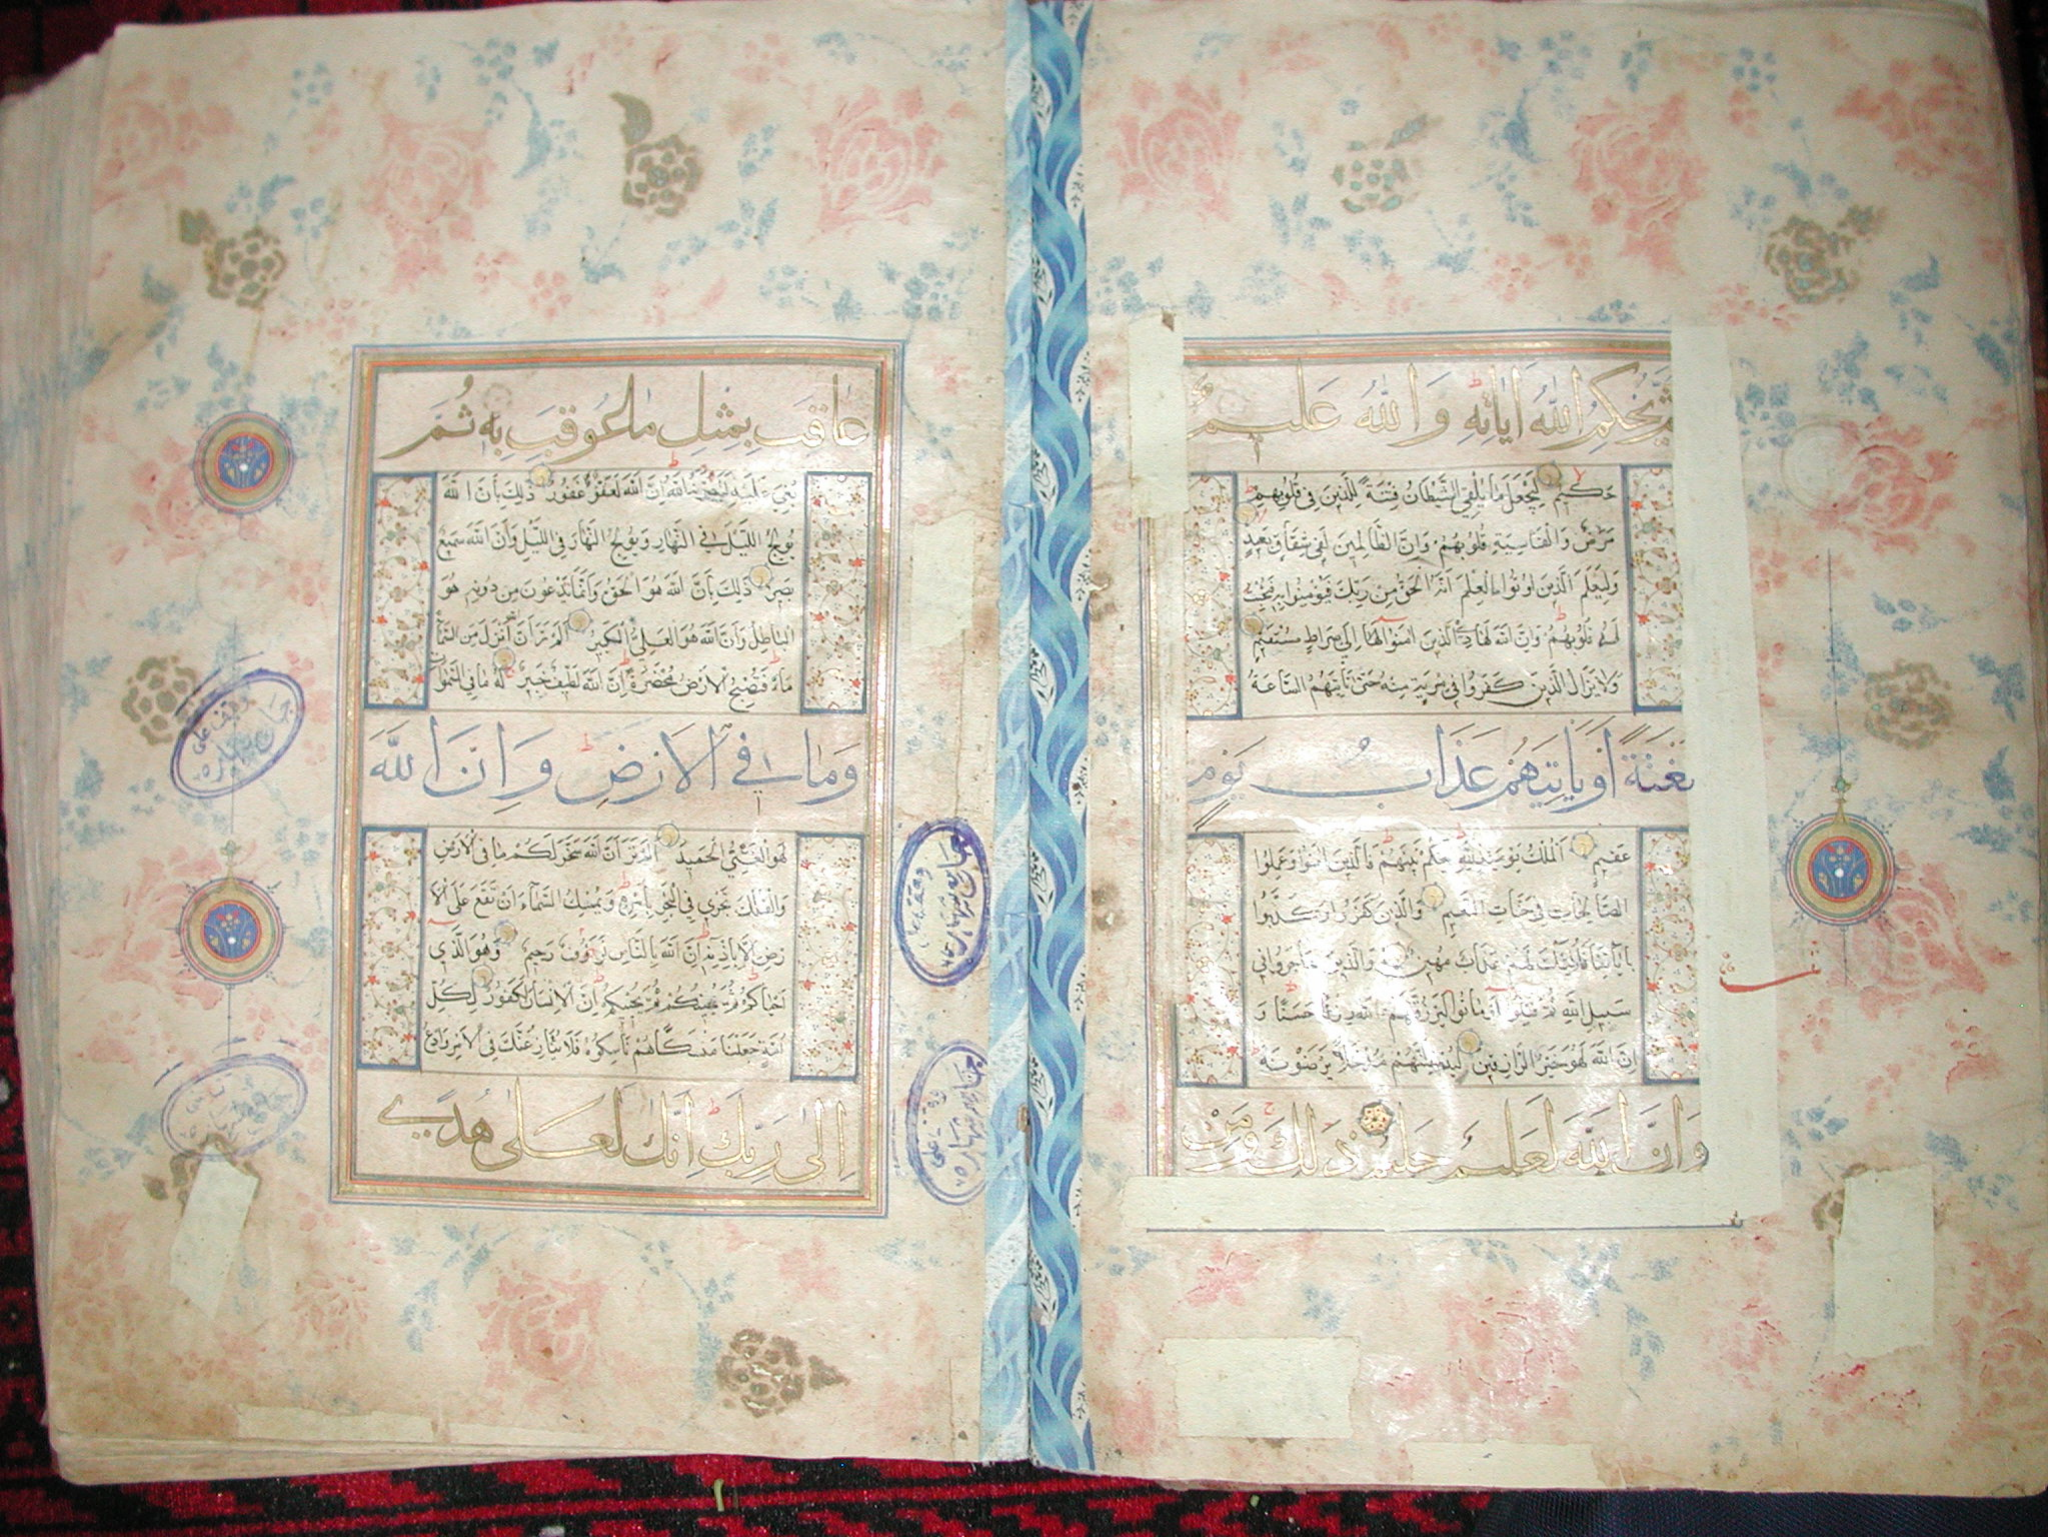 ثُمَّ يُحْكِمُ اللَّهُ اٰيَاتِهِ وَاللَّهُ عَلِيمٌ
حَكِيمٌ لِيَجْعَلَ مَا يُلْقِي الشَّيْطَانُ فِتْنَةً لِلَّذِينَ فِي قُلُوبِهِمْ
مَرَضٌ وَالْقَاسِيَةِ قُلُوبُهُمْ وَإِنَّ الظَّالِمِينَ لَفِي شِقَاقٍ بَعِيدٍ
وَلِيَعْلَمَ الَّذِينَ اوتُوا الْعِلْمَ أَنَّهُ الْحَقُّ مِنْ رَبِّكَ فَيُؤْمِنُوا بِهِ فَتُخْبِتَ
لَهُ قُلُوبُهُمْ وَإِنَّ اللَّهَ لَهَادِ الَّذِينَ اٰمَنُوا إِلَى صِرَاطٍ مُسْتَقِيمٍ
وَلَا يَزَالُ الَّذِينَ كَفَرُوا فِي مِرْيَةٍ مِنْهُ حَتَّى تَأْتِيَهُمُ السَّاعَةُ
بَغْتَةً أَوْ يَأْتِيَهُمْ عَذَابُ يَوْمٍ
عَقِيمٍ الْمُلْكُ يَوْمَئِذٍ لِلَّهِ يَحْكُمُ بَيْنَهُمْ فَالَّذِينَ اٰمَنُوا وَعَمِلُوا
الصَّالِحَاتِ فِي جَنَّاتِ النَّعِيمِ وَالَّذِينَ كَفَرُوا وَكَذَّبُوا
بِاٰيَاتِنَا فَأُولَئِكَ لَهُمْ عَذَابٌ مُهِينٌ وَالَّذِينَ هَاجَرُوا فِي
سَبِيلِ اللَّهِ ثُمَّ قُتِلُوا أَوْ مَاتُوا لَيَرْزُقَنَّهُمُ اللَّهُ رِزْقًا حَسَنًا وَ
إِنَّ اللَّهَ لَهُوَ خَيْرُ الرَّازِقِينَ لَيُدْخِلَنَّهُمْ مُدْخَلًا يَرْضَوْنَهُ
وَإِنَّ اللَّهَ لَعَلِيمٌ حَلِيمٌ ذَلِكَ وَمَنْ
عَاقَبَ بِمِثْلِ مَا عُوقِبَ بِهِ ثُمَّ
بُغِيَ عَلَيْهِ لَيَنْصُرَنَّهُ اللَّهُ إِنَّ اللَّهَ لَعَفُوٌّ غَفُورٌ ذَلِكَ بِأَنَّ اللَّهَ
يُولِجُ اللَّيْلَ فِي النَّهَارِ وَيُولِجُ النَّهَارَ فِي اللَّيْلِ وَأَنَّ اللَّهَ سَمِيعٌ
بَصِيرٌ ذَلِكَ بِأَنَّ اللَّهَ هُوَ الْحَقُّ وَأَنَّ مَا يَدْعُونَ مِنْ دُونِهِ هُوَ
الْبَاطِلُ وَأَنَّ اللَّهَ هُوَ الْعَلِيُّ الْكَبِيرُ أَلَمْ تَرَ أَنَّ اللَّهَ أَنْزَلَ مِنَ السَّمَاءِ
مَاءً فَتُصْبِحُ الْأَرْضُ مُخْضَرَّةً إِنَّ اللَّهَ لَطِيفٌ خَبِيرٌ لَهُ مَا فِي السَّمٰوَاتِ
وَمَا فِي الْأَرْضِ وَإِنَّ اللَّهَ
لَهُوَ الْغَنِيُّ الْحَمِيدُ أَلَمْ تَرَ أَنَّ اللَّهَ سَخَّرَ لَكُمْ مَا فِي الْأَرْضِ
وَالْفُلْكَ تَجْرِي فِي الْبَحْرِ بِأَمْرِهِ وَيُمْسِكُ السَّمَاءَ أَنْ تَقَعَ عَلَى الْأَ
رْضِ إِلَّا بِإِذْنِهِ إِنَّ اللَّهَ بِالنَّاسِ لَرَؤُوفٌ رَحِيمٌ وَهُوَ الَّذِي
أَحْيَاكُمْ ثُمَّ يُمِيتُكُمْ ثُمَّ يُحْيِيكُمْ إِنَّ الْإِنْسَانَ لَكَفُورٌ لِكُلِّ
أُمَّةٍ جَعَلْنَا مَنْسَكًا هُمْ نَاسِكُوهُ فَلَا يُنَازِعُنَّكَ فِي الْأَمْرِ وَادْعُ
إِلَى رَبِّكَ إِنَّكَ لَعَلَى هُدًى